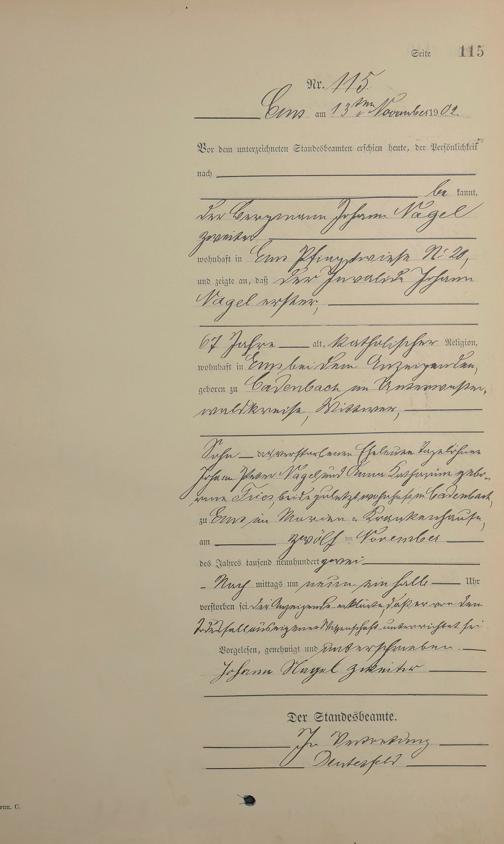 Seite 115
Nr. 115
Ems am 13ten November 1902.
Vor dem unterzeichneten Standesbeamten erschien heute, der Persönlichkeit
nach
be kannt,
der Bergmann Johann Nagel
zweiter
wohnhaft in Ems Pfingstwiese No 20,
und zeigte an, daß der Invalide Johann
Nagel erster,
67 Jahre alt, katholischer Religion,
wohnhaft in Ems bei dem Anzeigenden,
geboren zu Cadenbach im Unterwester-
waldkreise, Wittwer,
Sohn der verstorbenen Eheleute Tagelöhner
Johann Peter Nagel und Anna Katharina gebo-
rene Fries, beide zuletzt wohnhaft in Cadenbach,
zu Ems im Marien-Krankenhause,
am zwölf ten November
des Jahres tausend neunhundert zwei
Nach mittags um neun einhalb Uhr
verstorben sei, der Anzeigende erklärte, daß er von dem
Todesfall aus eigener Wissenschaft unterrichtet sei
Vorgelesen, genehmigt und unterschrieben.
Johann Nagel zweiter
Der Standesbeamte.
In Vertretung
C.